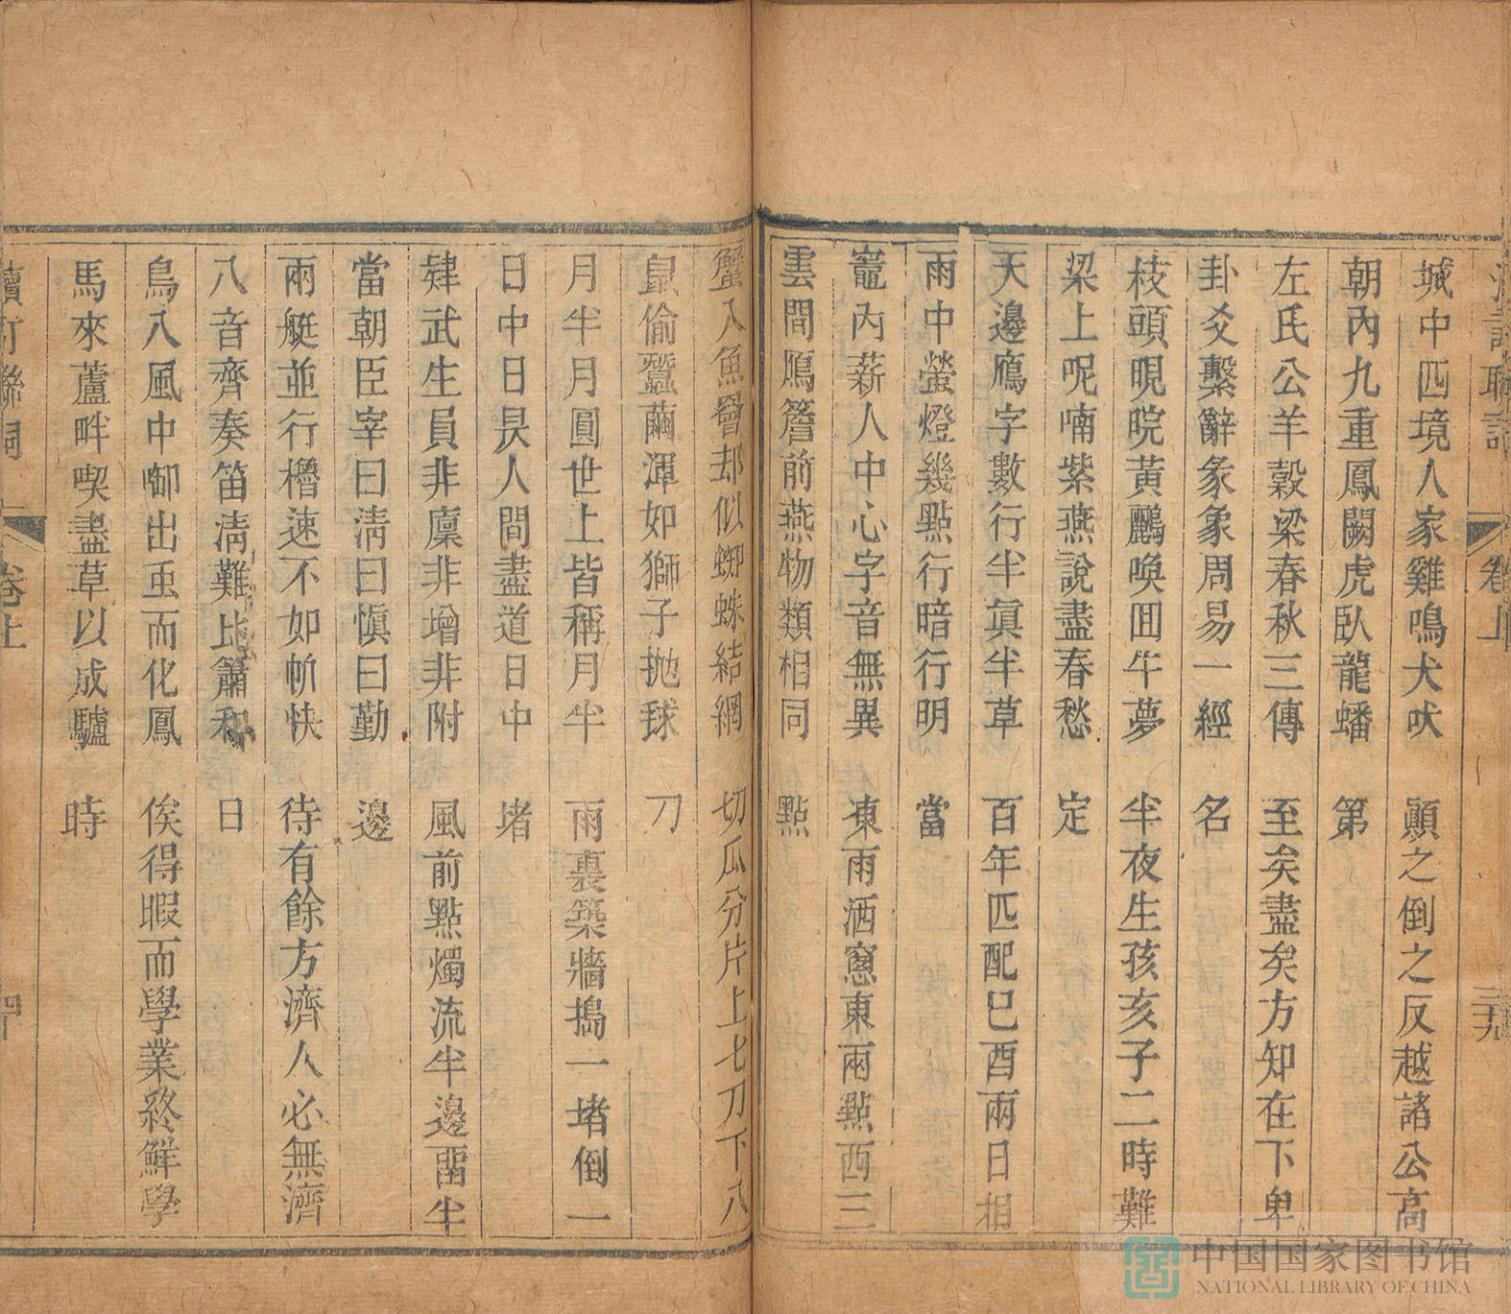 卷上 三十九
城中四境人家雞鳴犬吠 顚之倒之反越諸公高
朝內九重鳳闕虎臥龍蟠 第
左氏公羊穀梁春秋三傳 至矣盡矣方知在下卑
卦爻繫辭彖象周易一經 名
枝頭晛睆黃鸝喚囬午夢 半夜生孩亥子二時難
梁上呢喃紫燕說盡春愁 定
天邊鴈字數行半眞半草 百年匹配已酉兩日相
雨中螢燈幾點行暗行明 當
竈內薪人中心字音無異 凍雨洒窻東兩點西三
雲間鴈簷前燕物類相同 點
蟹入魚罾却似蜘蛛結網 切瓜分片上七刀下八
鼠偷蠶繭渾如獅子拋毬 刀
月半月圓世上皆稱月半 雨裏築牆搗一堵倒一
日中日昃人間盡道日中 堵
肄武生員非廩非增非附 風前點燭流半邊畱半
當朝臣宰曰清曰愼曰勤 邊
兩艇並行櫓速不如帆快 待有餘方濟人必無濟
八音齊奏笛清難比簫和 日
鳥入風中啣出虫而化鳳 俟得暇而學業終鮮學
馬來蘆畔喫盡草以成驢 時
卷上 四十
中国国家图书馆
NATIONAL LIBRARY OF CHINA